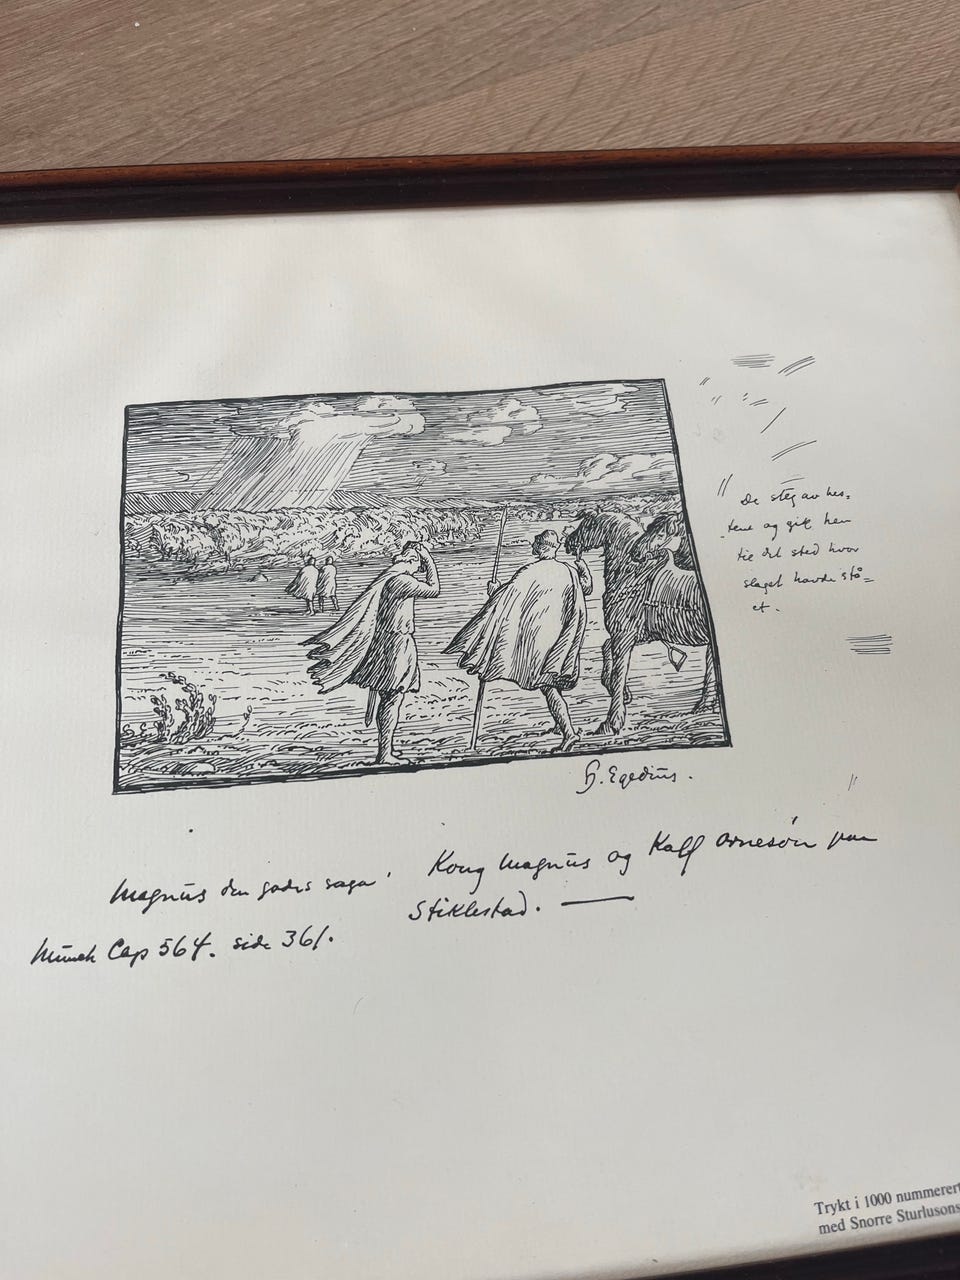 " De steg av hes=
tene og gik hen
til det sted hvor
slaget havde stå=
et.
H. Egedius.
Magnus den godes saga. Kong Magnus og Kalf Arnesön paa
Stiklestad. —
Munch Cap 564. side 361.
Trykt i 1000 nummerert
med Snorre Sturlusons